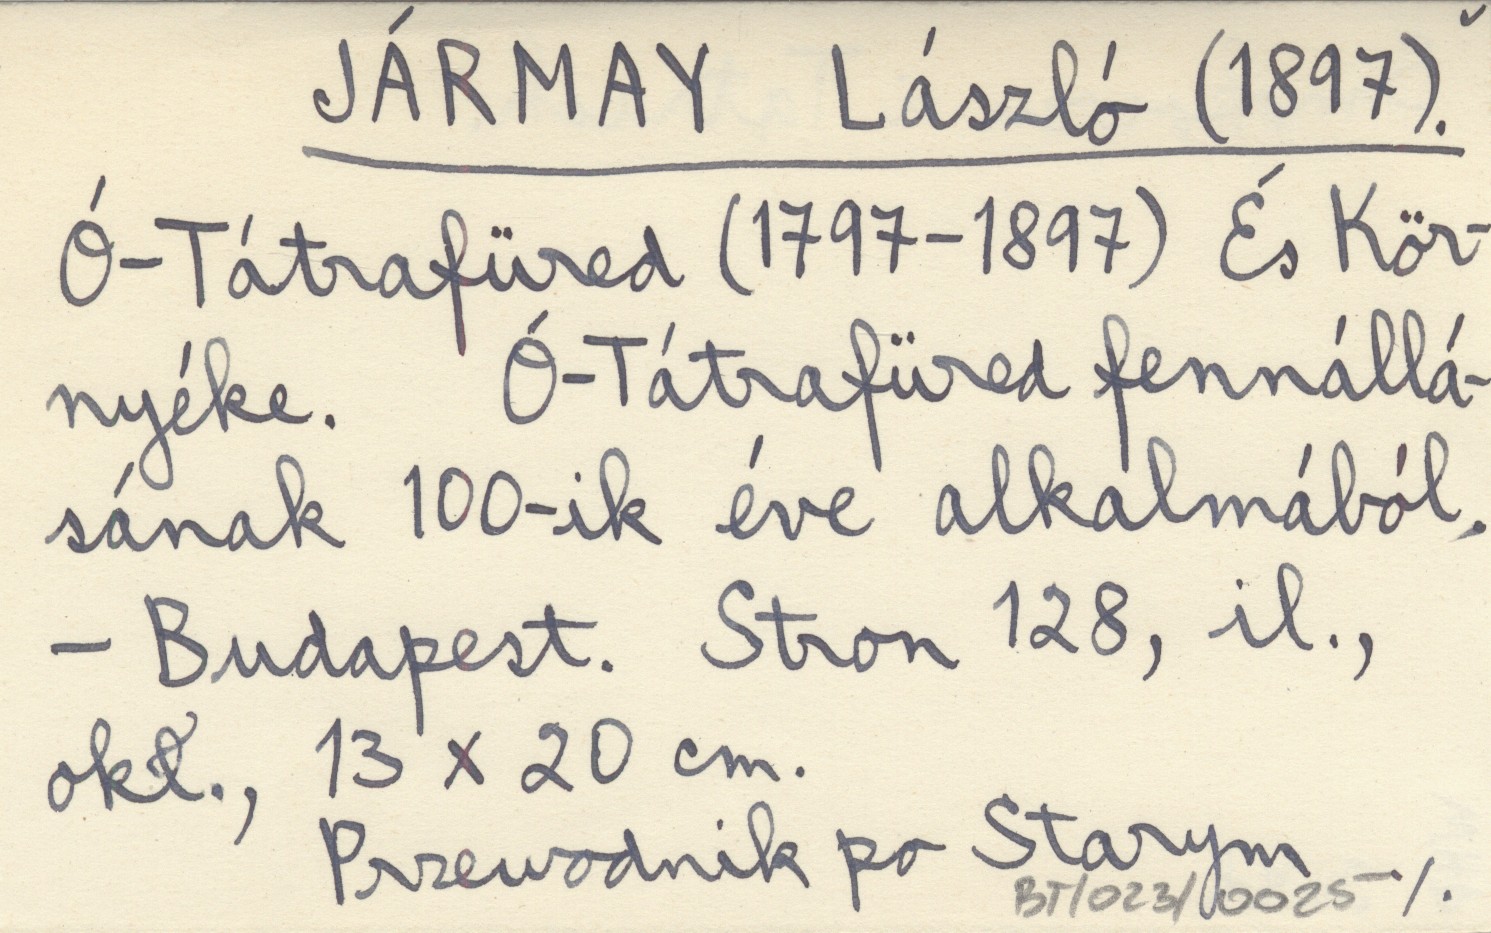 JÁRMAY László (1897).
Ó-Tátrafüred (1797-1897) És Kör-
nyéke. Ó-Tátrafüred fennállá-
sának 100-ik éve alkalmából.
- Budapest. Stron 128, il.,
okł., 13 x 20 cm.
Przewodnik po Starym -/.
BT/023/0025